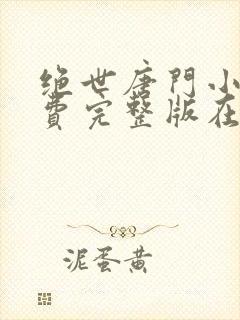 绝世唐門小
費完整版在
泥蛋黄